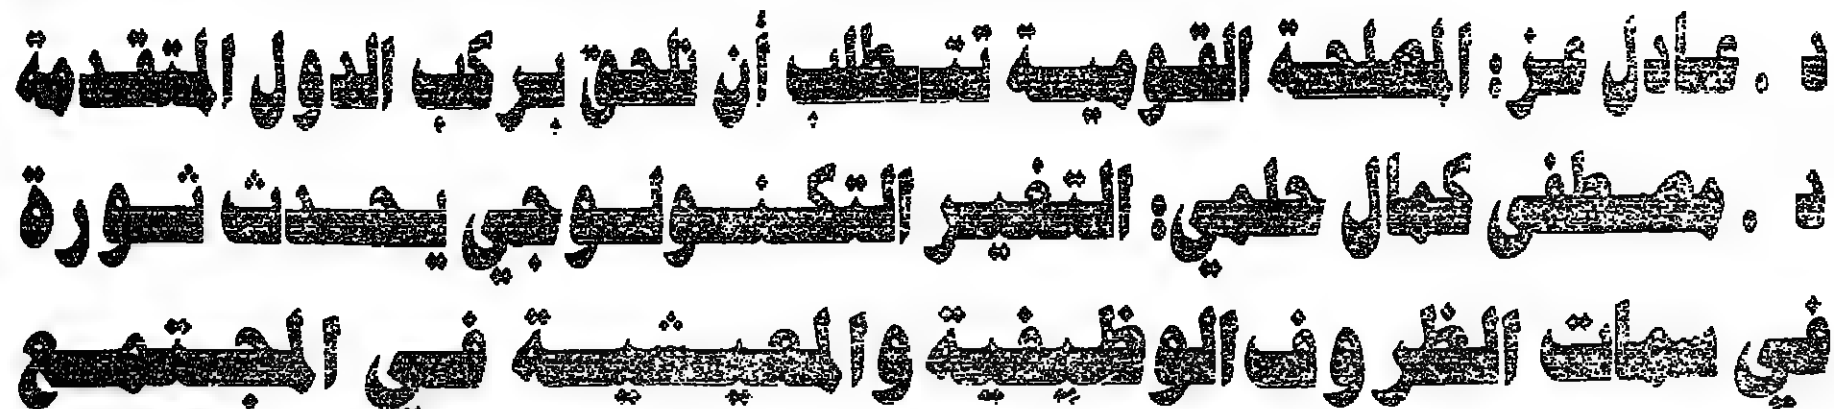 د . عادل عز : المصلحة القومية تتطلب أن نلحق بركب الدول المتقدمة
د . مصطفى كمال حلمي : التغير التكنولوجي يحدث ثورة
في سمات الظروف الوظيفية والمعيشية في المجتمع